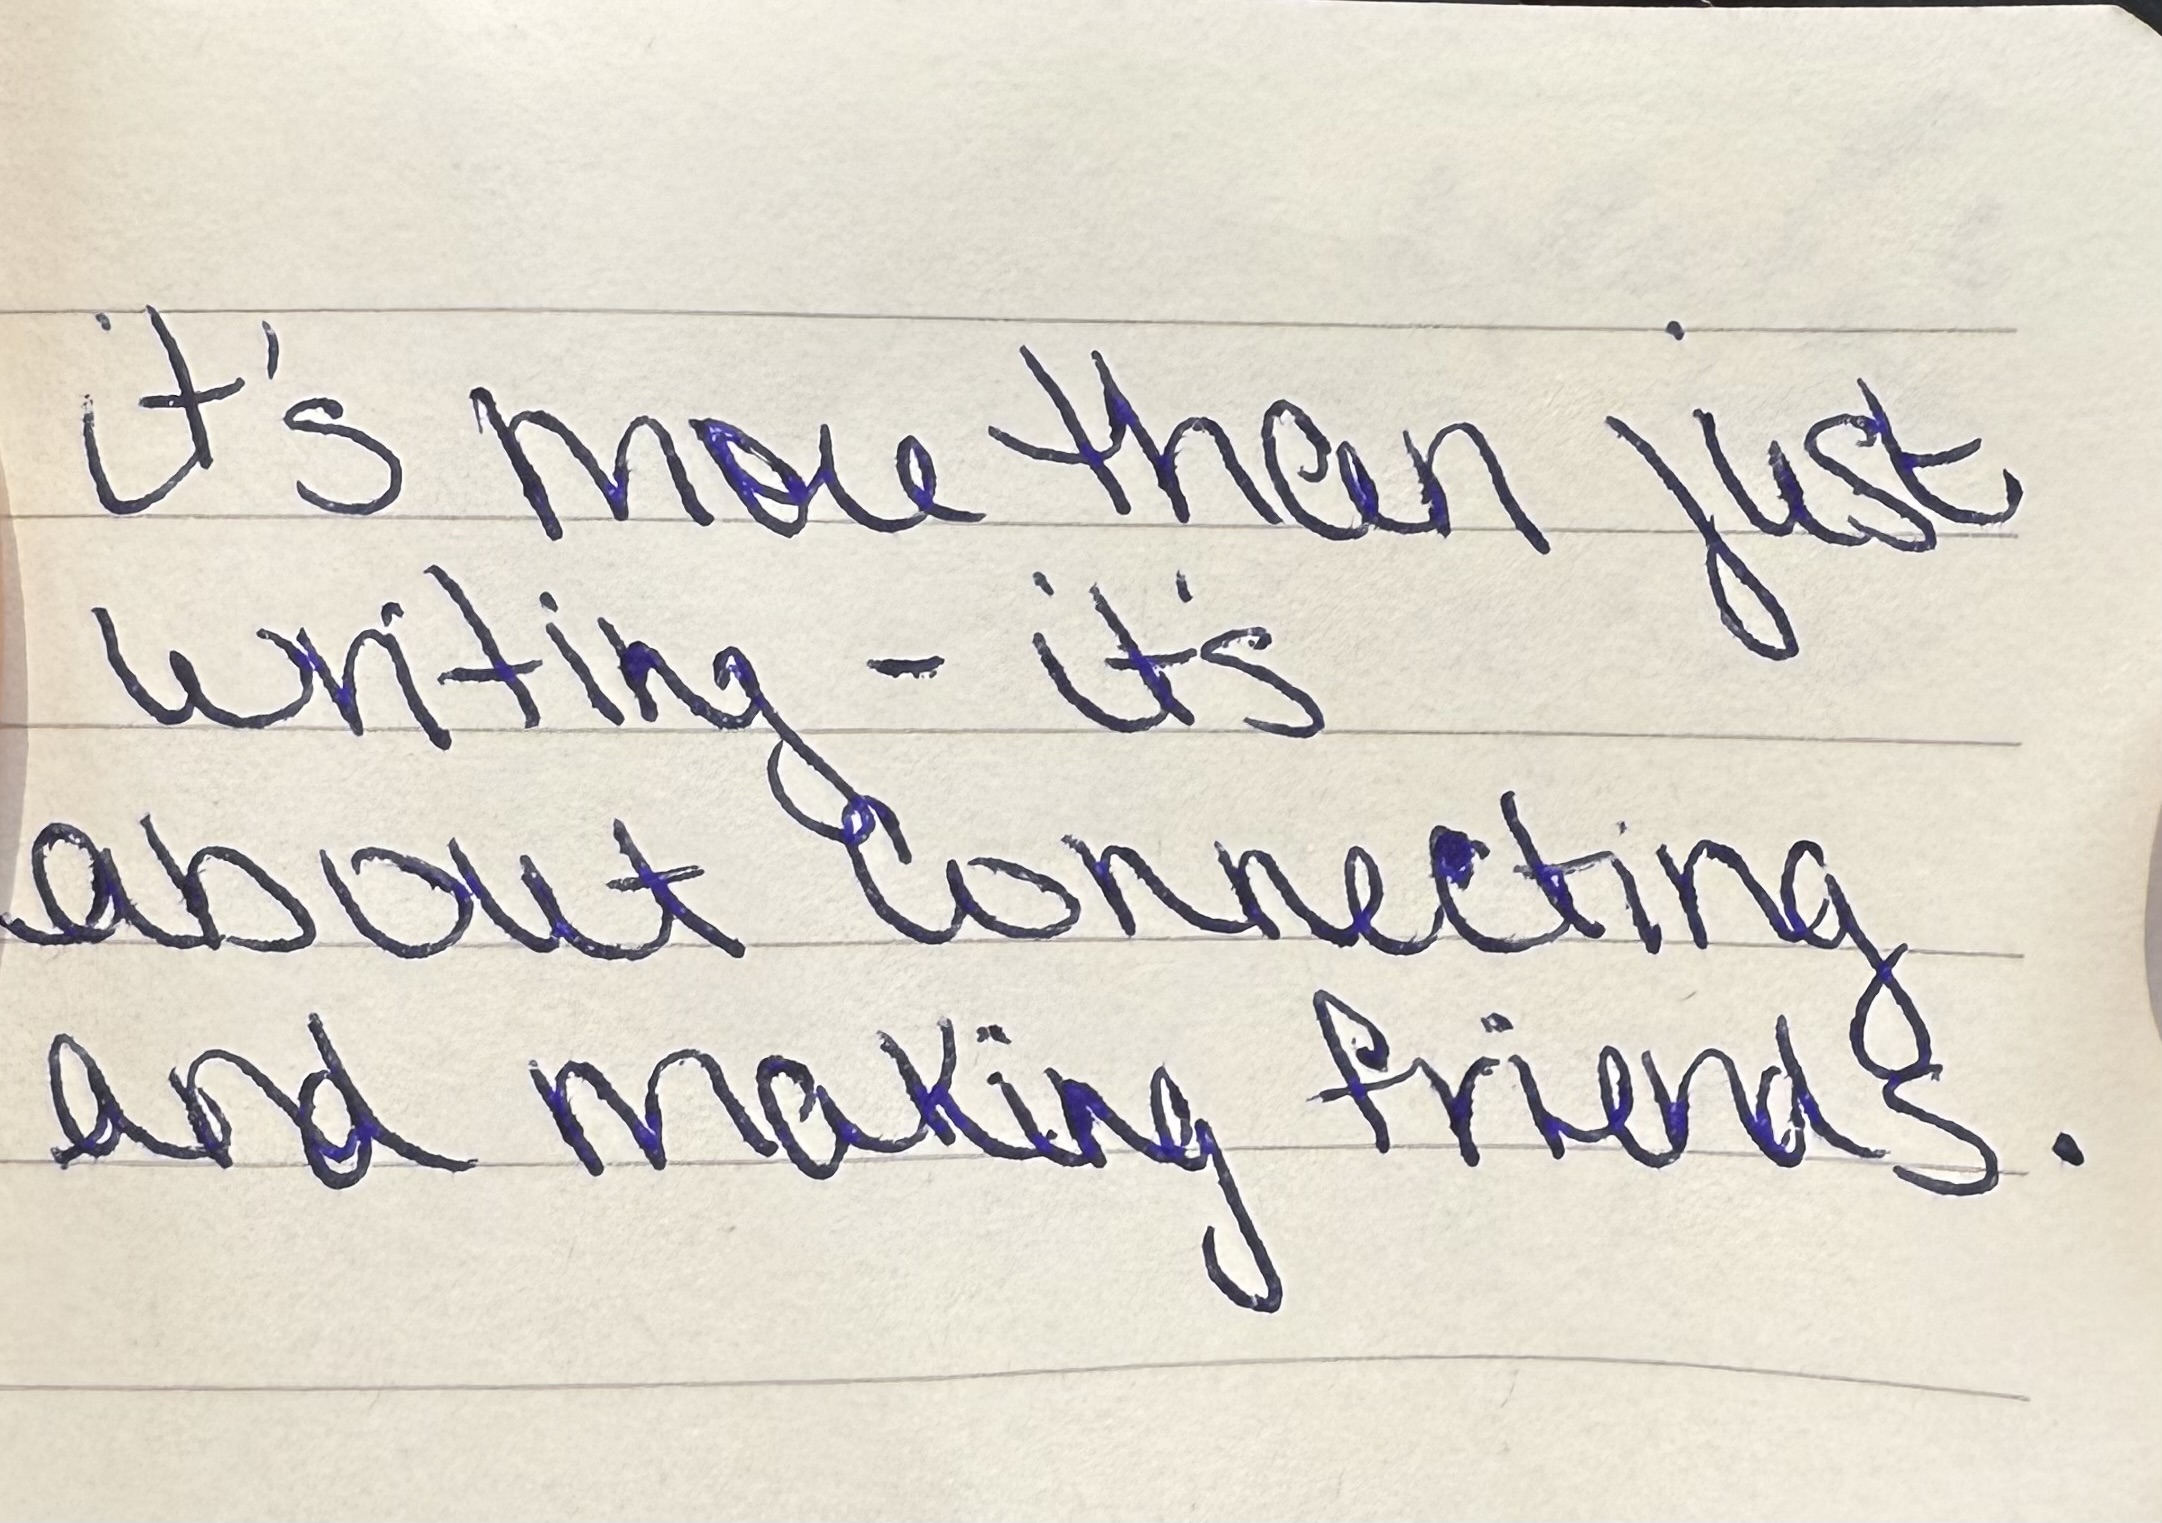 it's more than just
writing - it's
about connecting
and making friends.